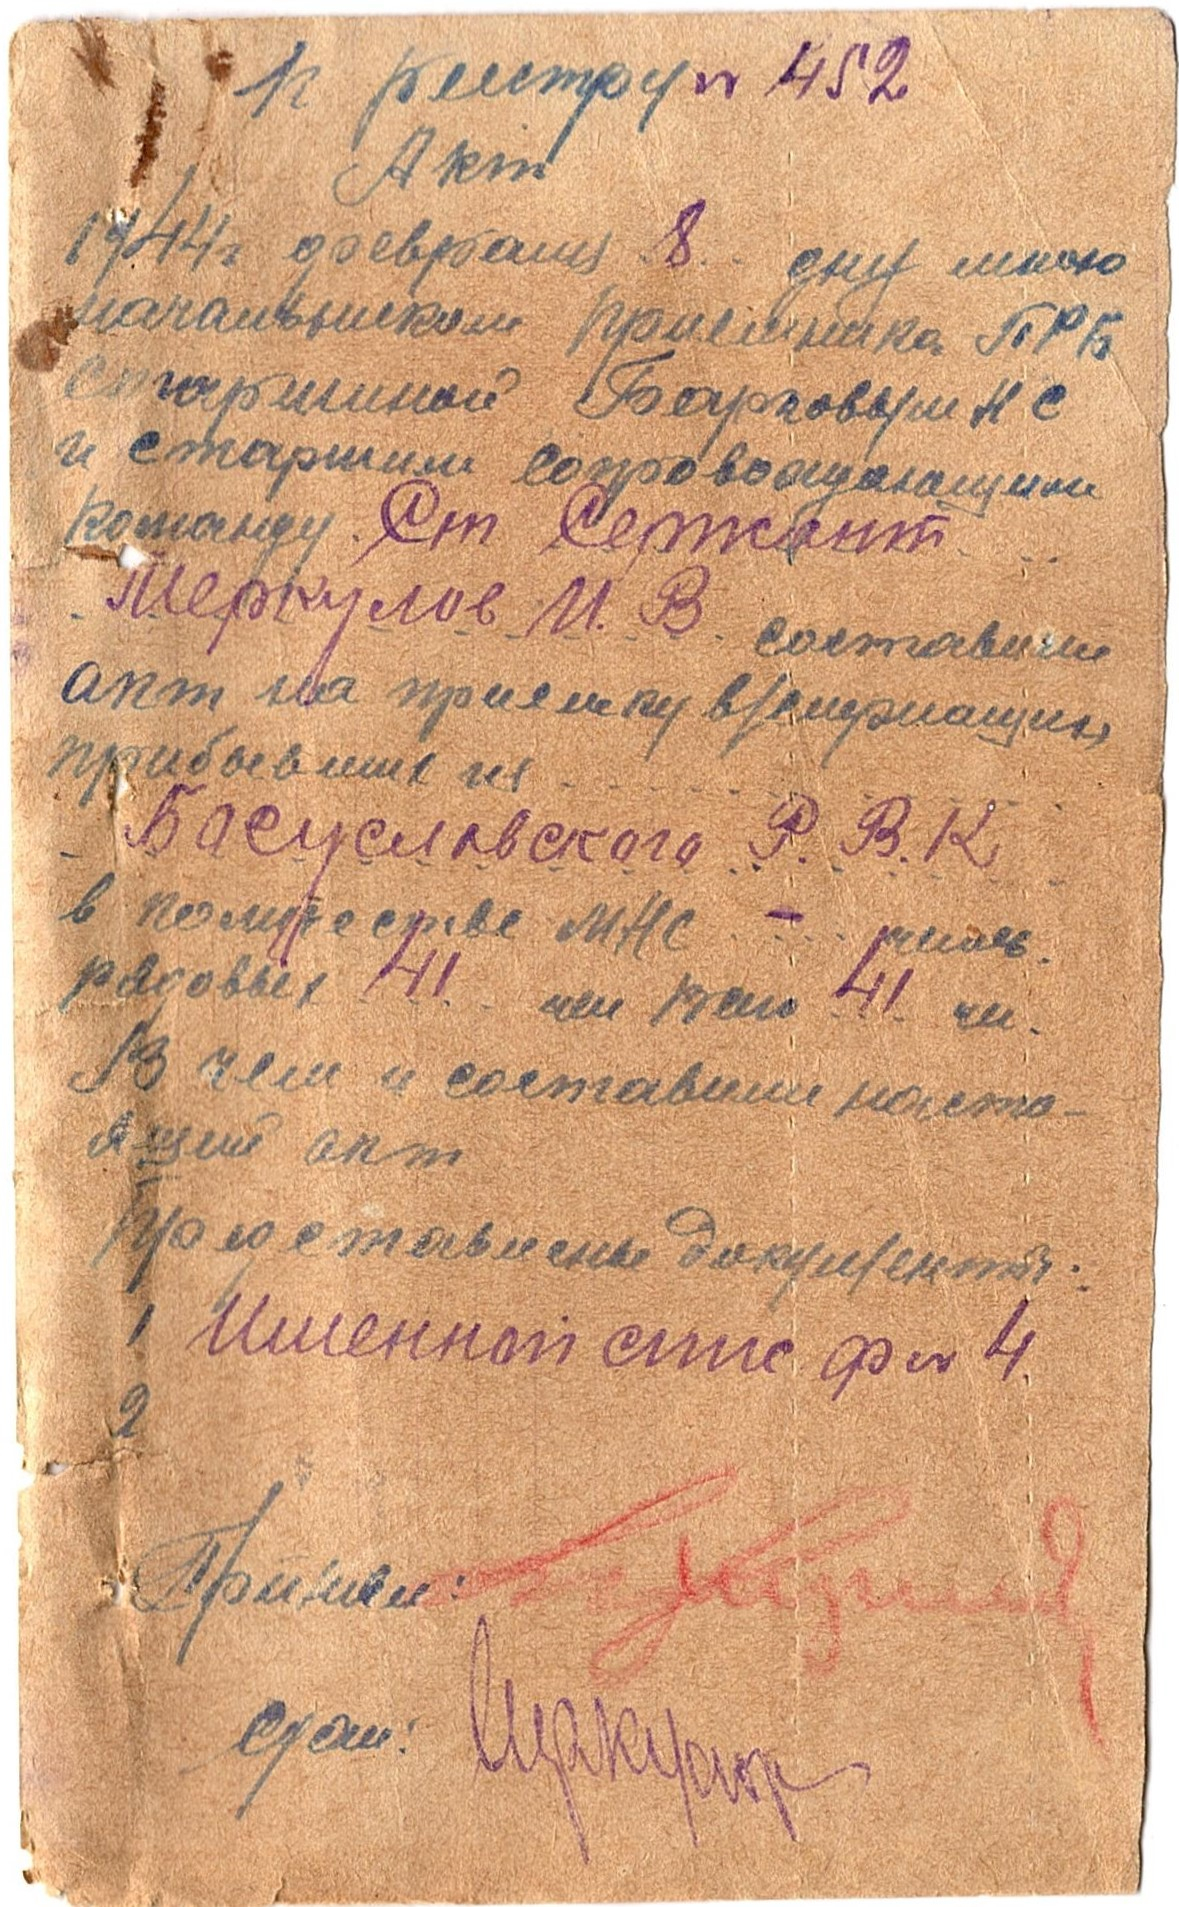 к реестру № 452
Акт
1944г февраля 8 дня мною
начальником приемника ПРБ
старшиной Барговым Н С
и старшим сопровождающим
команду Ст Сержант
Меркулов И. В составили
акт на приемку в/служащих
прибывших из
Богусловского Р. В. К
в количестве МНС - челов.
рядовых 41 чел всего 41 чл.
В чем и составили насто-
ящий акт
Представлены документы:
1 Именной спис ф № 4
2
Принял:
сдал: Меркулов